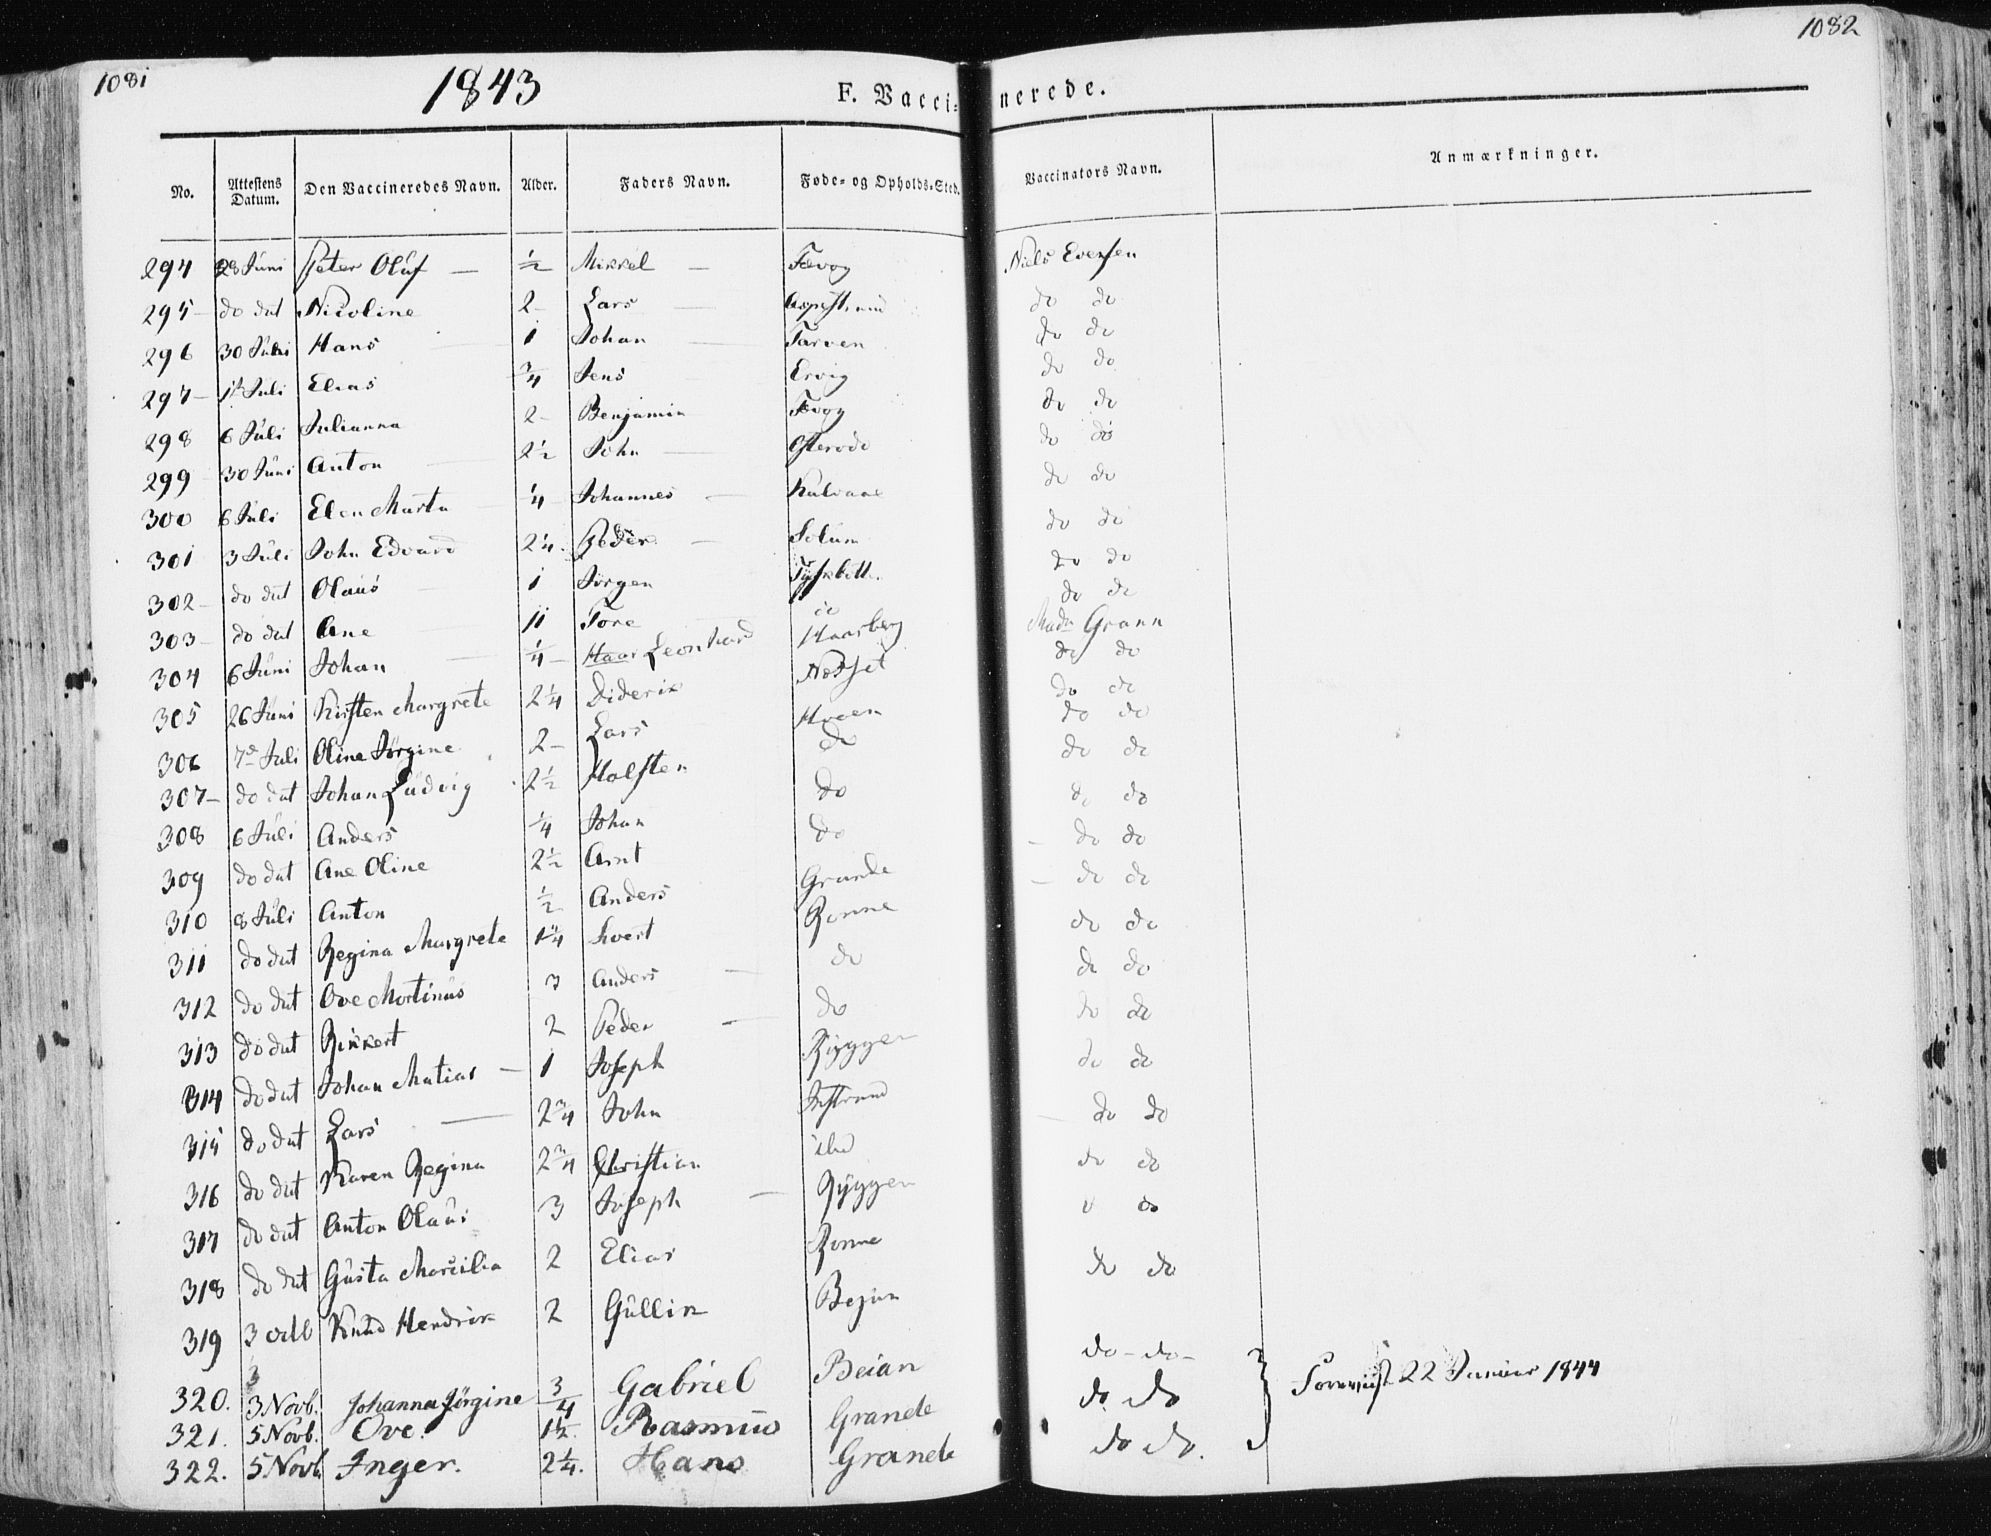 1081
1843
F. Vaccinerede.
1082
No. Attestens Datum. Den Vaccineredes Navn. Alder. Faders Navn. Føde- og Opholds-Sted. Vaccinators Navn. Anmærkninger.
294 28 Juni Peter Oluf — ½ Mikkel — Fevog Niels Evensen
295 do dat Nicoline 2 Lars do do
296 30 Juni Hans 1 Johan Tarven do do
297 1ste Juli Elias ¾ Jens Ervig do do
298 6 Juli Julianna 2 Benjamin Fevog do do
299 30 Juni Anton 2½ John Osterode do do
300 6 Juli Elen Marta ¼ Johannes do do
301 3 Juli John Edvard 2¼ Peder — Solum do do
302 do dat Olaus 1 Jørgen do do
303 do dat Ane 11 Tore do do do
304 6 Juni Johan ¼ Haar Leonhard Haarberg Grann
305 26 Juni Kirsten Margrete 2¼ Diderik Nesset do do
306 7de Juli Oline Jørgine 2 Lars Hoeen do do
307 do dat Johan Ludvig 2½ Halsten do do do
308 6 Juli Anders ¼ Johan do do do
309 do dat Ane Oline 2½ Arnt do do do
310 8 Juli Anton ½ Anders Grande do do
311 do dat Regina Margrete 1¼ Sivert Rønne do do
312 do dat Ove Mortinus 3 Anders — do do do
313 do dat Rikkert 2 Peder — do do do
314 do dat Johan Matias — 1 Joseph Ryggen do do
315 do dat Lars — 2¾ John do do
316 do dat Karen Regina 2¾ Christian ibid do do
317 do dat Anton Olaus 3 Joseph — Ryggen do do
318 do dat Gusta Marcilia 2 Elias Rønne do
319 3 Octb Knud Hendrik 2 Gullik Bejan do do
320. 3 Novb. Johanna Jørgine ¾ Gabriel Beian do - do -
321. 5 Novb. Ove. 1½. Rasmus Grande do do 22 Januar 1844
322. 5 Novb. Inger. 2¼. Hans Grande do do.